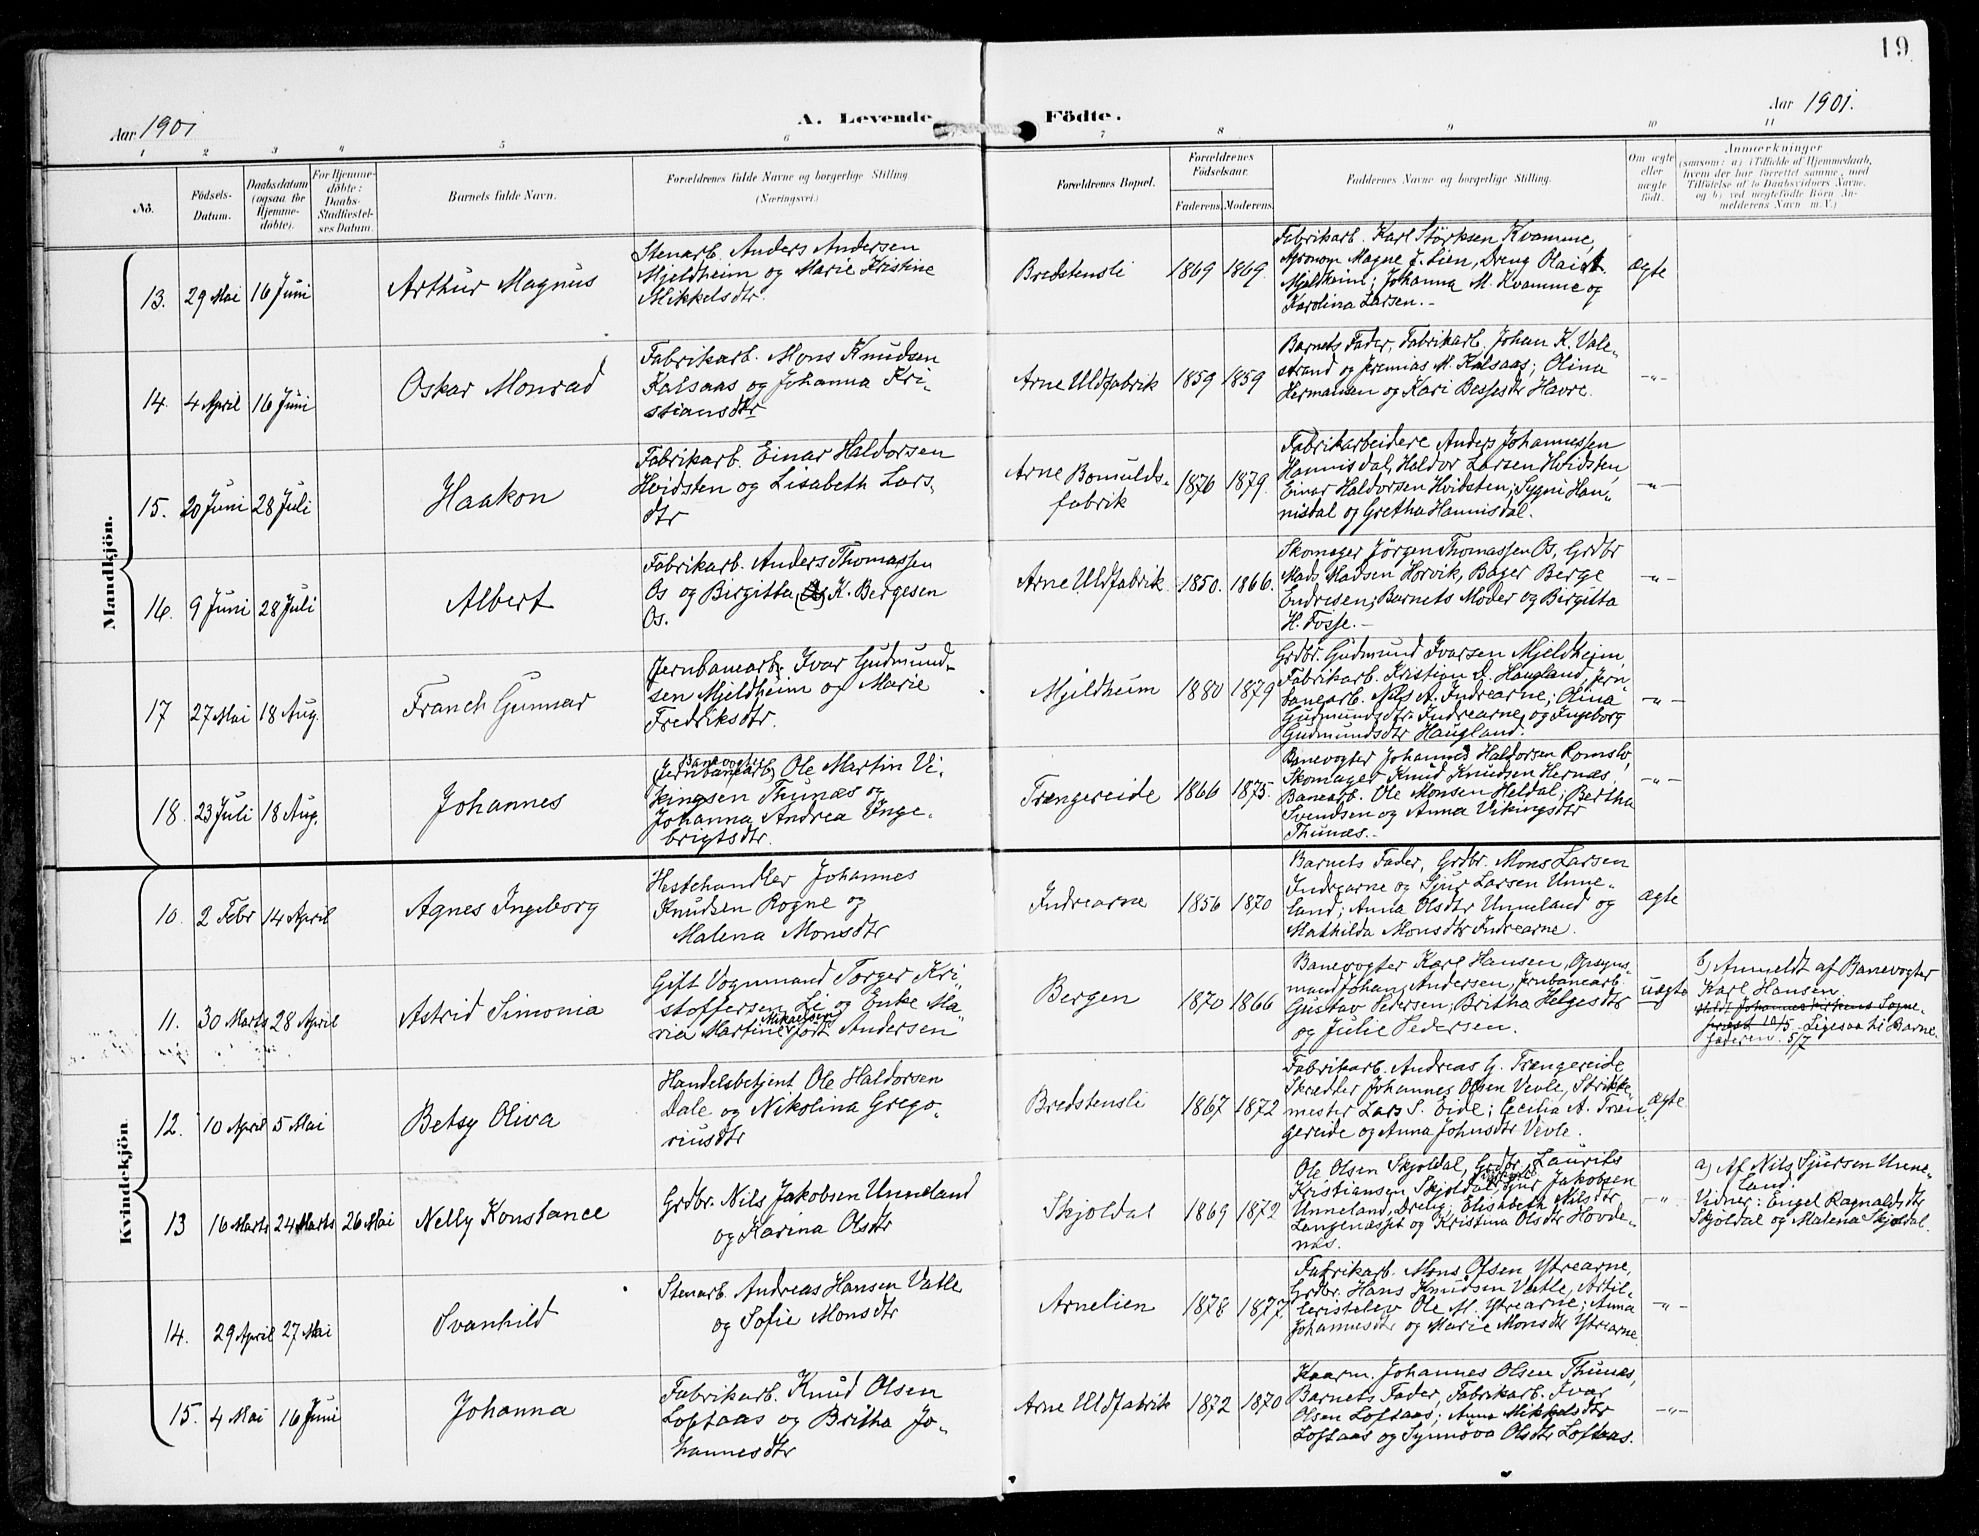 19
Aar 1901
A. Levende
Födte.
Aar 1901.
1 2 3 4 5 6 7 8 9 10 11
No.
Födsels-
Datum.
Daabsdatum
(ogsaa for
Hjemme-
döbte).
For Hjemme-
döbte:
Daabs-
Stadfæstel-
ses Datum.
Barnets fulde Navn.
Forældrenes fulde Navne og borgerlige Stilling.
(Næringsvei.)
Forældrenes Bopæl.
Forældrenes
Födselsaar.
Faderens. Moderens.
Faddernes Navne og borgerlige Stilling.
Om ægte
eller
uægte
födt.
Anmærkninger
(saasom: a) i Tilfælde af Hjemmedaab,
hvem der har forrettet samme, med
Tilföielse af to Daabsvidners Navne,
og b) ved uægtefödte Börn An-
melderens Navn m. V.)
Mandkjön.
13. 29 Mai 16 Juni
Arthur Magnus
Stenarb. Anders Andersen
Mjeldheim og Marie Kristine
Mikkelsdtr.
Bredstensli
1869 1869.
Fabrikarb. Karl Störksen Kvamme,
Agronom Magne J. Lien, Dreng Olai A.
Mjeldheim; Johanna M. Kvamme og
Karolina Larsen.-
ægte
14. 4 April 16 Juni
Oskar Monrad
Fabrikarb. Mons Knudsen
Kalsaas og Johanna Kri-
stiansdtr
Arne Uldfabrik
1859 1859
Barnets Fader, Fabrikarb. Johan K. Vale-
strand og Jremias M. Kalsaas; Olina
Hermansen og Kari Bessesdtr Havre.
-"-
15. 20 Juni 28 Juli
Haakon
Fabrikarb. Einar Haldorsen
Hvidsten og Lisabeth Lars-
dtr
Arne Bomulds-
fabrik
1876 1879.
Fabrikarbeidere Anders Johannessen
Hannisdal, Haldor Larsen Hvidsten,
Einar Haldorsen Hvidsten; Sygni Han-
nisdal og Gretha Hannisdal.
-"-
16. 9 Juni 28 Juli
Albert
Fabrikarb. Anders Thomassen
Os og Birgitta K. Bergesen
Os.
Arne Uldfabrik
1850. 1866.
Skomager Jörgen Thomassen Os, Grdbr
Mads Madsen Horvik, Bager Berge
Endresen; Barnets Moder og Birgitta
H. Fosse.-
-"-
17 27 Mai 18 Aug.
Franch Gunnar
Jernbanearb. Ivar Gudmund-
sen Mjeldheim og Marie
Fredriksdtr.
Mjeldheim
1880 1879
Grdbr. Gudmund Ivarsen Mjeldheim,
Fabrikarb. Kristian A. Haugland, Jern-
banearb. Nils A. Indrearne; Olina
Gudmundsdtr Indrearne, og Ingeborg
Gudmundsdtr Haugland.
-"-
18. 23 Juli 18 Aug.
Johannes
Banevogter
(Jernbanearb.) Ole Martin Vi-
kingsen Thunæs og
Johanna Andrea Inge-
brigtsdtr.
Trengereide
1866 1875.
Banevogter Johannes Haldorsen Romslo,
Skomager Knud Knudsen Hernæs,
Banearb. Ole Monsen Heldal; Bertha
Svendsen og Anna Vikingsdtr
Thunæs.-
-"-
Kvindekjön.
10. 2 Febr 14 April
Agnes Ingeborg
Hestehandler Johannes
Knudsen Rogne og
Malena Monsdtr
Indrearne
1856 1870
Barnets Fader, Grdbr. Mons Larsen
Indrearne og Sjur Larsen Unne-
land; Anna Olsdtr Unneland og
Mathilda Monsdtr Indrearne.
ægte
11. 30 Marts 28 April
Astrid Simonia
Gift Vognmand Torger Kri-
stoffersen Li og Enke Ma-
ria Martine Mikaelsen født Andersen
Bergen
1870 1866
Banevogter Karl Hansen, Opsyns-
mand Johan Andersen, Jernbanearb.
Gustav Pedersen; Britha Helgesdtr
og Julie Pedersen.
uægte
b) Anmeldt af Banevogter
Karl Hansen.
Meldt Johanneskirkens Sogne-
præst 10/5. Ligesaa til Barne-
faderen. 5/7
12. 10 April 5 Mai
Betsy Oliva
Handelsbetjent Ole Haldorsen
Dale og Nikolina Grego-
riusdtr
Bredstensli
1867 1872
Fabrikarb. Andreas G. Trengereide
Skrædder Johannes Olsen Vevle, Strikke-
mester Lars S. Eide; Cecilia A. Tren-
gereide og Anna Johnsdtr Vevle.
ægte
13 16 Marts 24 Marts 26 Mai
Nelly Konstance
Grdbr. Nils Jakobsen Unneland
og Karina Olsdtr
Skjoldal
1869 1872
Ole Olsen Skjoldal, Grdbr. Laurits
Kristiansen Skjoldal, Sjur Jakobsen
Unneland, Drelig; Elisabeth Nilsdtr
Langenæsset og Kristina Olsdtr Hovde-
næs.
-"-
a) Af Nils Sjursen Unne-
land.
Vidner: Engel Ragnaldsdtr
Skjoldal og Malena Skjoldal.
14. 29 April 27 Mai
Svanhild
Stenarb. Andreas Hansen Vatle
og Sofie Monsdtr
Arnelien
1878 1877
Fabrikarb. Mons Olsen Ytrearne,
Grdbr. Hans Knudsen Vatle, Artil-
lerielev Ole M. Ytrearne; Anna
Johannesdtr og Marie Monsdtr Ytrearne
-"-
15. 4 Mai 16 Juni
Johanna
Fabrikarb. Knud Olsen
Loftaas og Britha Jo-
hannesdtr
Arne Uldfabrik
1872 1870
Kaarm. Johannes Olsen Thunæs,
Barnets Fader, Fabrikarb. Ivar
Olsen Loftaas; Anna Mikkelsdtr
Loftaas og Synnöva Olsdtr Loftaas.
-"-